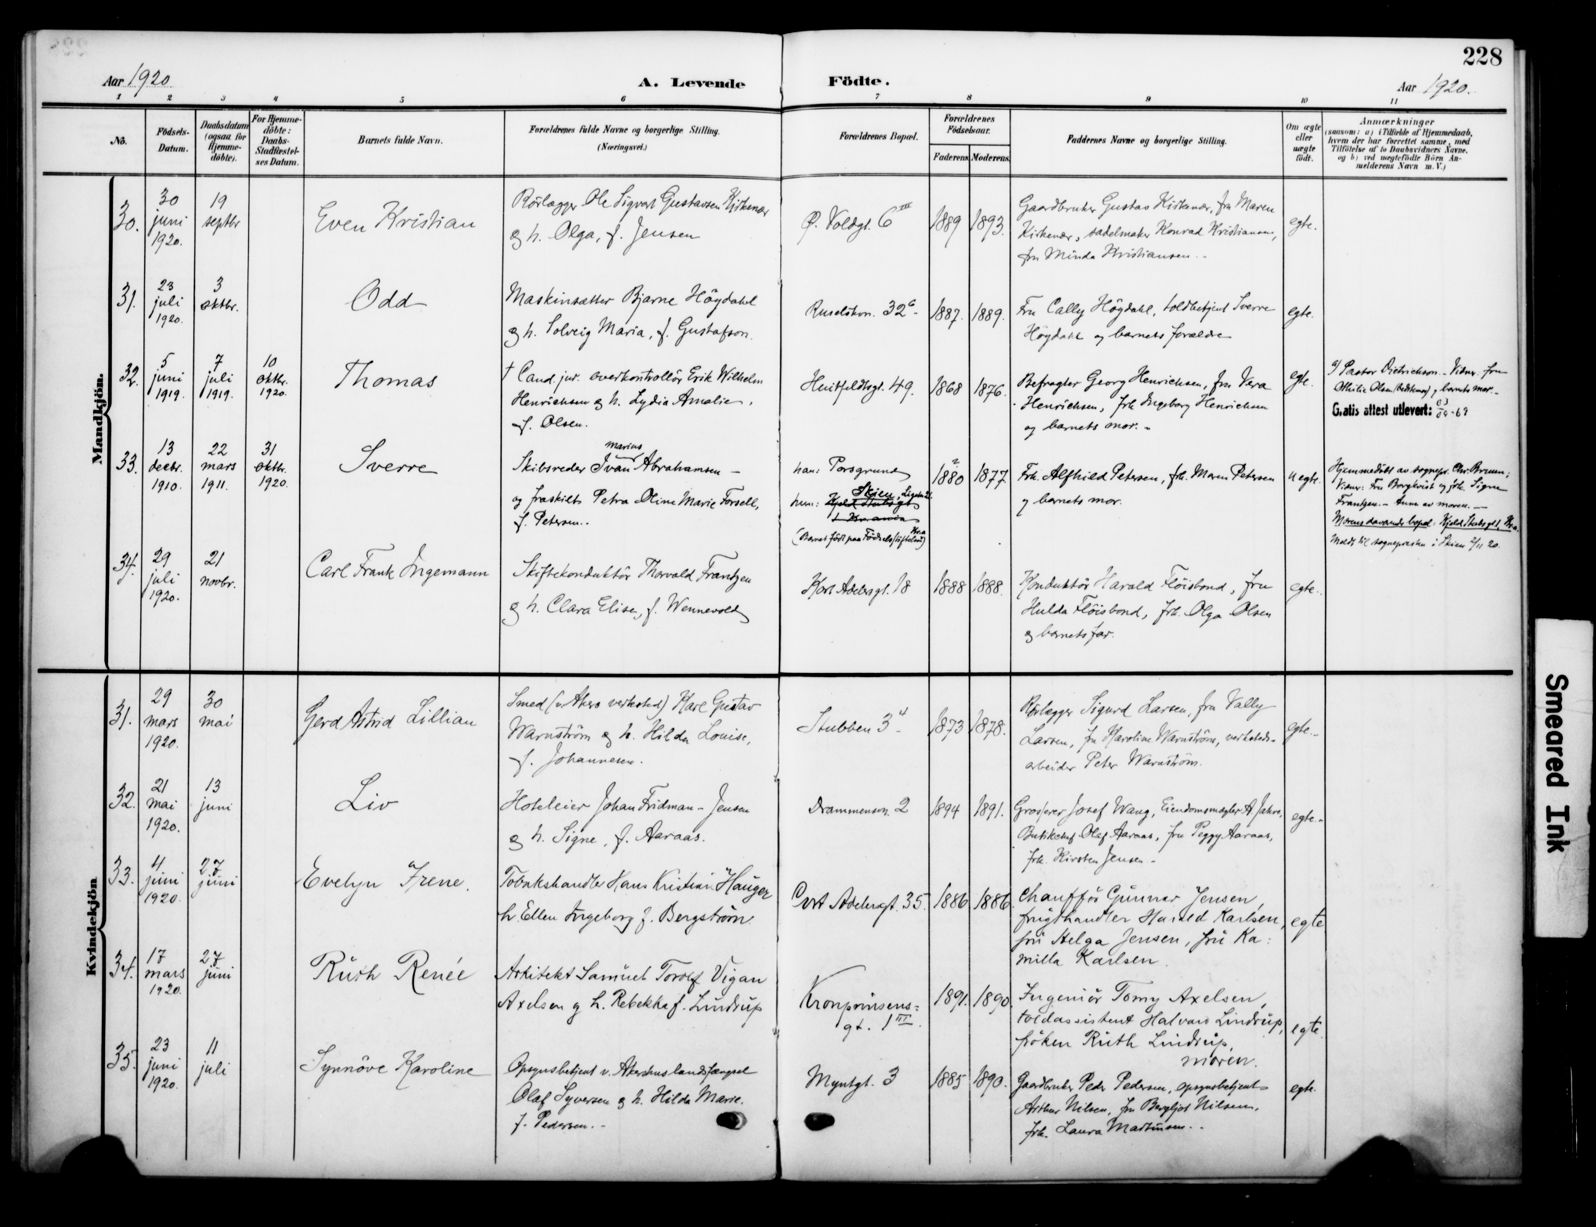 228
Aar 1920
A. Levende Födte.
Aar 1920.
1 2 3 4 5 6 7 8 9 10 11
No.
Födsels-
Datum.
Daabsdatum
(ogsaa for
Hjemme-
döbte).
For Hjemme-
döbte:
Daabs-
Stadfæstel-
ses Datum.
Barnets fulde Navn.
Forældrenes fulde Navne og borgerlige Stilling.
(Næringsvei.)
Forældrenes Bopæl.
Forældrenes
Födselsaar.
Faderens. Moderens.
Faddernes Navne og borgerlige Stilling.
Om ægte
eller
uægte
födt.
Anmærkninger
(saasom: a) i Tilfælde af Hjemmedaab,
hvem der har forrettet samme, med
Tilföielse af to Daabsvidners Navne,
og b) ved uægtefödte Börn An-
melderens Navn m. V.)
Mandkjön.
30.
30
juni
1920.
19
septbr
Even Kristian
Rörlægger Ole Sigvart Gustavsen Kirkenær
og h. Olga, f. Jensen
Ø. Voldgt. 6 III
1889
1893.
Gaardbruker Gustav Kirkenær, fru Maren
Kirkenær, sadelmaker Konrad Kristiansen,
fru Minda Kristiansen.
egte.
31.
23
juli
1920.
3
oktbr.
Odd
Maskinsætter Bjarne Höydahl
og h. Solveig Maria, f. Gustafson.
Ruselökv. 32
1887.
1889.
Fru Cally Höydahl, toldbetjent Sverre
Höydahl og barnets forældre
egte.
32.
5
juni
1919.
7
juli
1919.
10
oktbr.
1920.
Thomas
† Cand. jur. overkontrollör Erik Wilhelm
Henrichsen og h. Lydia Amalie,
f. Olsen.
Huitfeldtsgt. 49.
1868
1876.
Befragter Georg Henrichsen, fru Vera
Henrichsen, frk. Ingeborg Henrichsen
og barnets mor.
egte.
a/ Pastor Dietrichson. Vidner: fru
Othilie Olsen og barnets mor.
Gratis attest utlevert:
33.
13
decbr.
1910.
22
mars
1911.
31
oktbr.
1920.
Sverre
marius
Skibsreder Ivan Abrahamsen
og fraskilte Petra Oline Marie Forsell,
f. Petersen.
han: Porsgrund
hun: Skien,
Kra.
(Barnet födt paa Födselsstiftelsen)
1880
1877
Frk. Alfhild Petersen, frk. Maren Petersen
og barnets mor.
u egte.
Hjemmedöbt av sognepr. Chr. Bruun;
Vidner: Fru Borgkvist og frk. Signe
Frantzen. Anm. av moren.
Morens daværende bopæl: Kra.
Meldt til sognepresten i Skien 2/11 20.
34.
29
juli
1920.
21
novbr.
Carl Frank Ingemann
Skiftekonduktör Thorvald Frantzen
og h. Clara Elise, f. Wennevold
Kort Adelersgt. 18
1888
1888.
Konduktör Harald Flöisbond, fru
Hulda Flöisbond, frk. Olga Olsen
og barnets far.
egte.
Kvindekjön
31.
29
mars
1920.
30
mai
Gerd Astrid Lillian
Smed (v Akers verksted) Karl Gustav
Warnström og h. Hilda Louise,
f. Johannesen.
Stubben 3
1873
1878.
Rörlægger Sigurd Larsen, fru Vally
Larsen, fru Karoline Warnström, verksteds-
arbeider Peter Warnström.
egte.
32.
21
mai
1920.
13
juni
Liv
Hoteleier Johan Fridman-Jensen
og h. Signe, f. Aaraas.
Drammensv. 2
1894
1891.
Grosserer Josef Wang, Eiendomsmægler A. Jahn,
Butikchef Olaf Aaraas, fru Peggy Aaraas,
frk. Kirsten Jensen.
egte.
33.
4
juni
1920.
27
juni
Evelyn Irene.
Tobakshandler Hans Kristian Hauger
h. Ellen Ingeborg f. Bergström.
Cort Adelersgt. 35.
1886
1886.
Chaufför Gunnar Jensen,
frugthandler Harald Karlsen,
fru Helga Jensen, fru Ka-
milla Karlsen.
egte
34.
17
mars
1920.
27
juni
Ruth Renée
Arkitekt Samuel Torolf Vigan
Axelsen og h. Rebekka f. Lindrup
Kronprinsens-
gt. 1 III
1891.
1890.
Ingeniör Tomy Axelsen,
toldassistent Halvard Lindrup,
fröken Ruth Lindrup,
moren.
egte
35.
23
juni
1920.
11
juli
Synnöve Karoline
Opsynsbetjent v. Akershus landsfængsel
Olaf Syversen og h. Hilda Marie.
f. Pedersen.
Myntgt. 3
1885
1890.
Gaardbruker Peder Pedersen, opsynsbetjent
Arthur Nilsen, fru Bergljot Nilsen,
frk. Laura Martinsen.
egte.
Smeared Ink